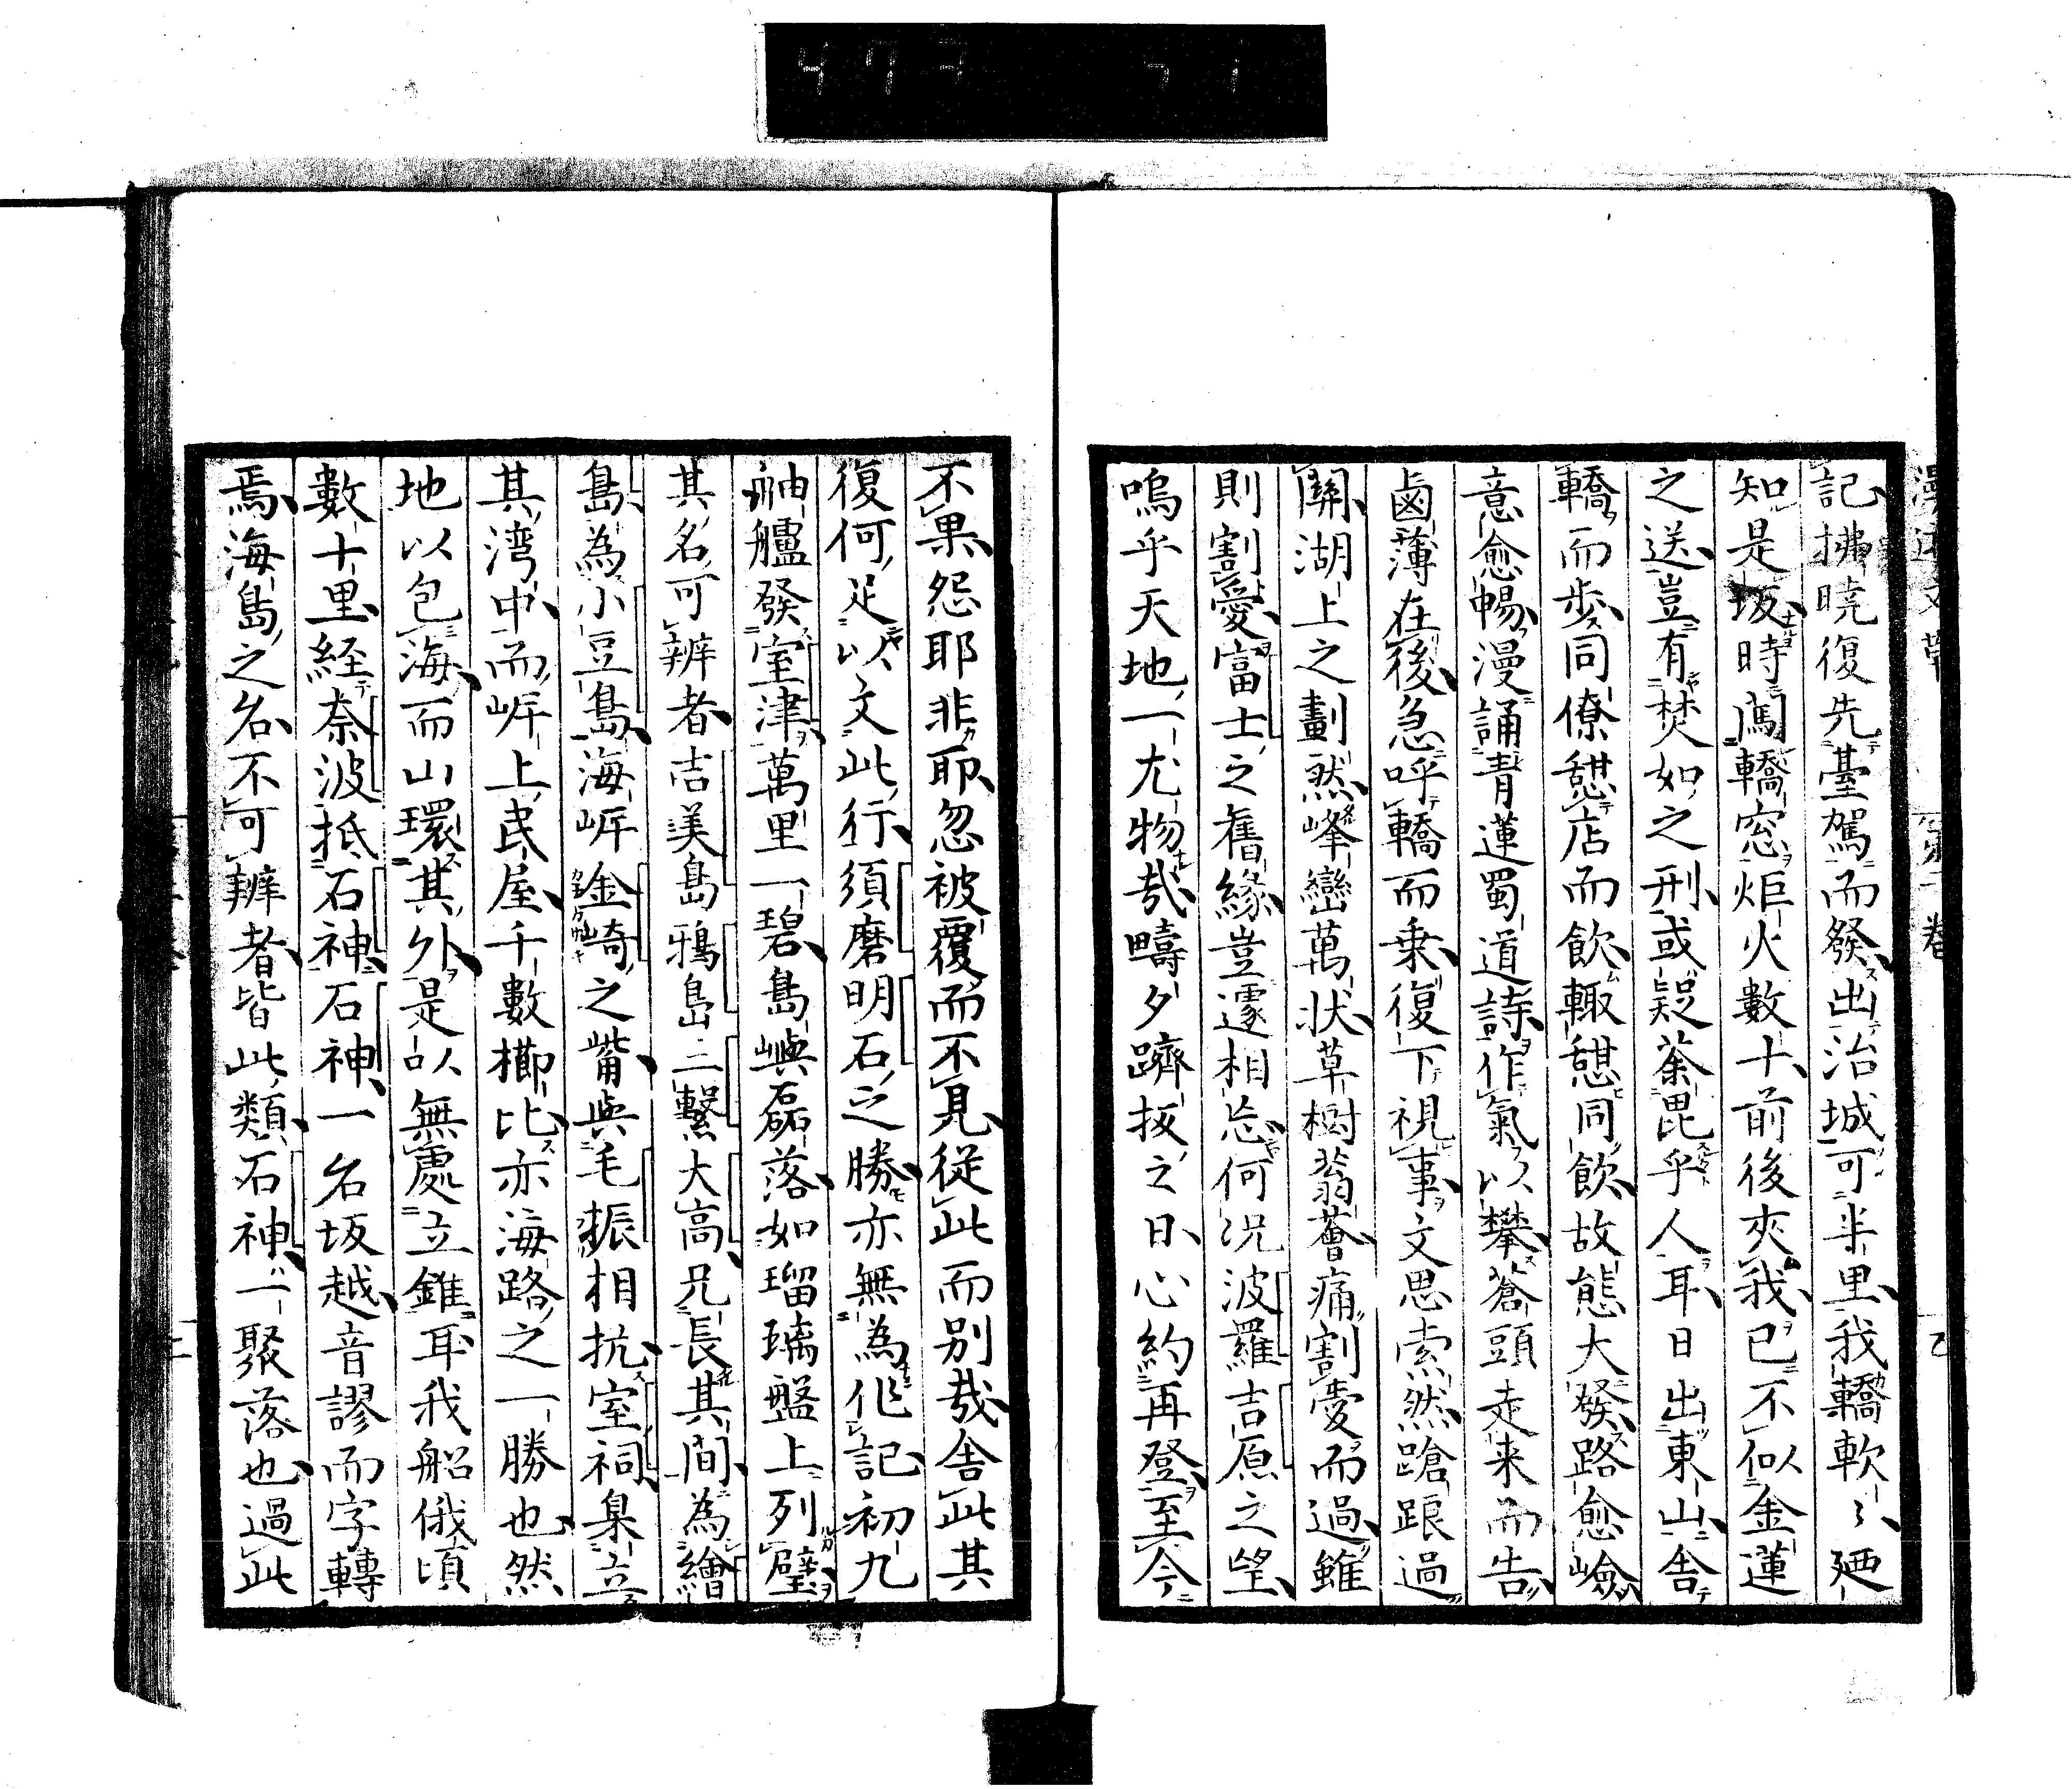 記拂曉復先臺駕而發出治城可半里我轎軟々廼
知是坂時闖轎窓炬火數十前後夾我已不似金蓮
之送豈有焚如之刑或疑荼毘乎人耳日出東山舎
轎而歩同僚憇店而飲輙憇同飲故態大發路愈嶮
意愈暢漫誦青蓮蜀道詩作氣以攀蒼頭走来而告
鹵薄在後急呼轎而乗復下視事文思索然蹌踉過
關湖上之劃然峰巒萬状草樹蓊薈痛割愛而過雖
則割愛富士之舊縁豈遽相忘何况波羅吉原之望
嗚乎天地一尤物哉疇夕躋扳之日心約再登至今
不果怨耶非耶忽被覆而不見從此而別哉舎此其
復何足以文此行須磨明石之勝亦無為作記初九
舳艫發室津萬里一碧島嶼磊落如瑠璃盤上列璧
其名可辨者吉美島鴉島二繋大高兄長其間為繪
島為小豆島海岸金崎之觜與毛振相抗室祠臬立
其湾中而岸上民屋千數櫛比亦海路之一勝也然
地以包海而山環其外是以無處立錐耳我船俄頃
數十里経奈波抵石神石神一名坂越音謬而字轉
焉海島之名不可辨者皆此類石神一聚落也過此